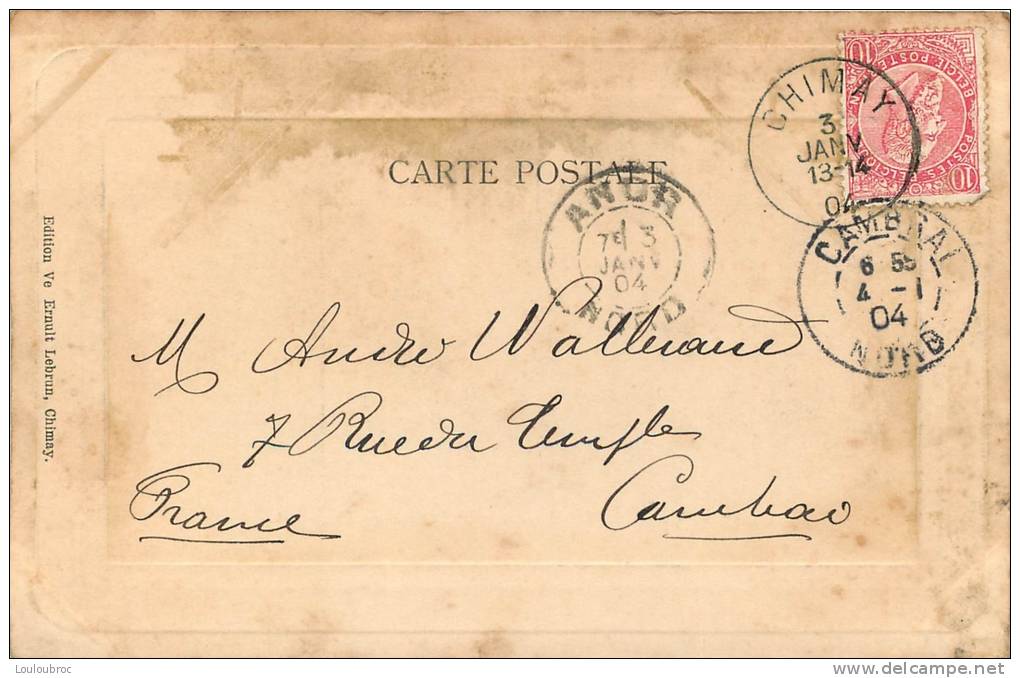 CARTE POSTALE
CHIMAY
3
JANV
13-14
04
10 10
BELGIE POSTE
POSTES BELGIQUE
ANOR
7E 3
JANV
04
NORD
CAMBRAI
6 55
4 -1
04
NORD
M André Wallerand
7 Rue du Temple
France Cambrai
Edition Ve Ernult Lebrun, Chimay.
Louloubroc
delcampe.net